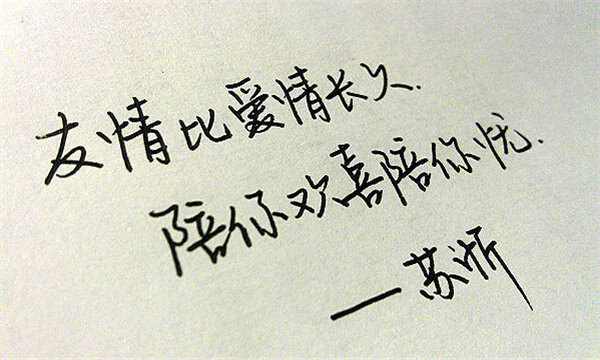 友情比爱情长久.
陪你欢喜陪你忧.
——苏浙